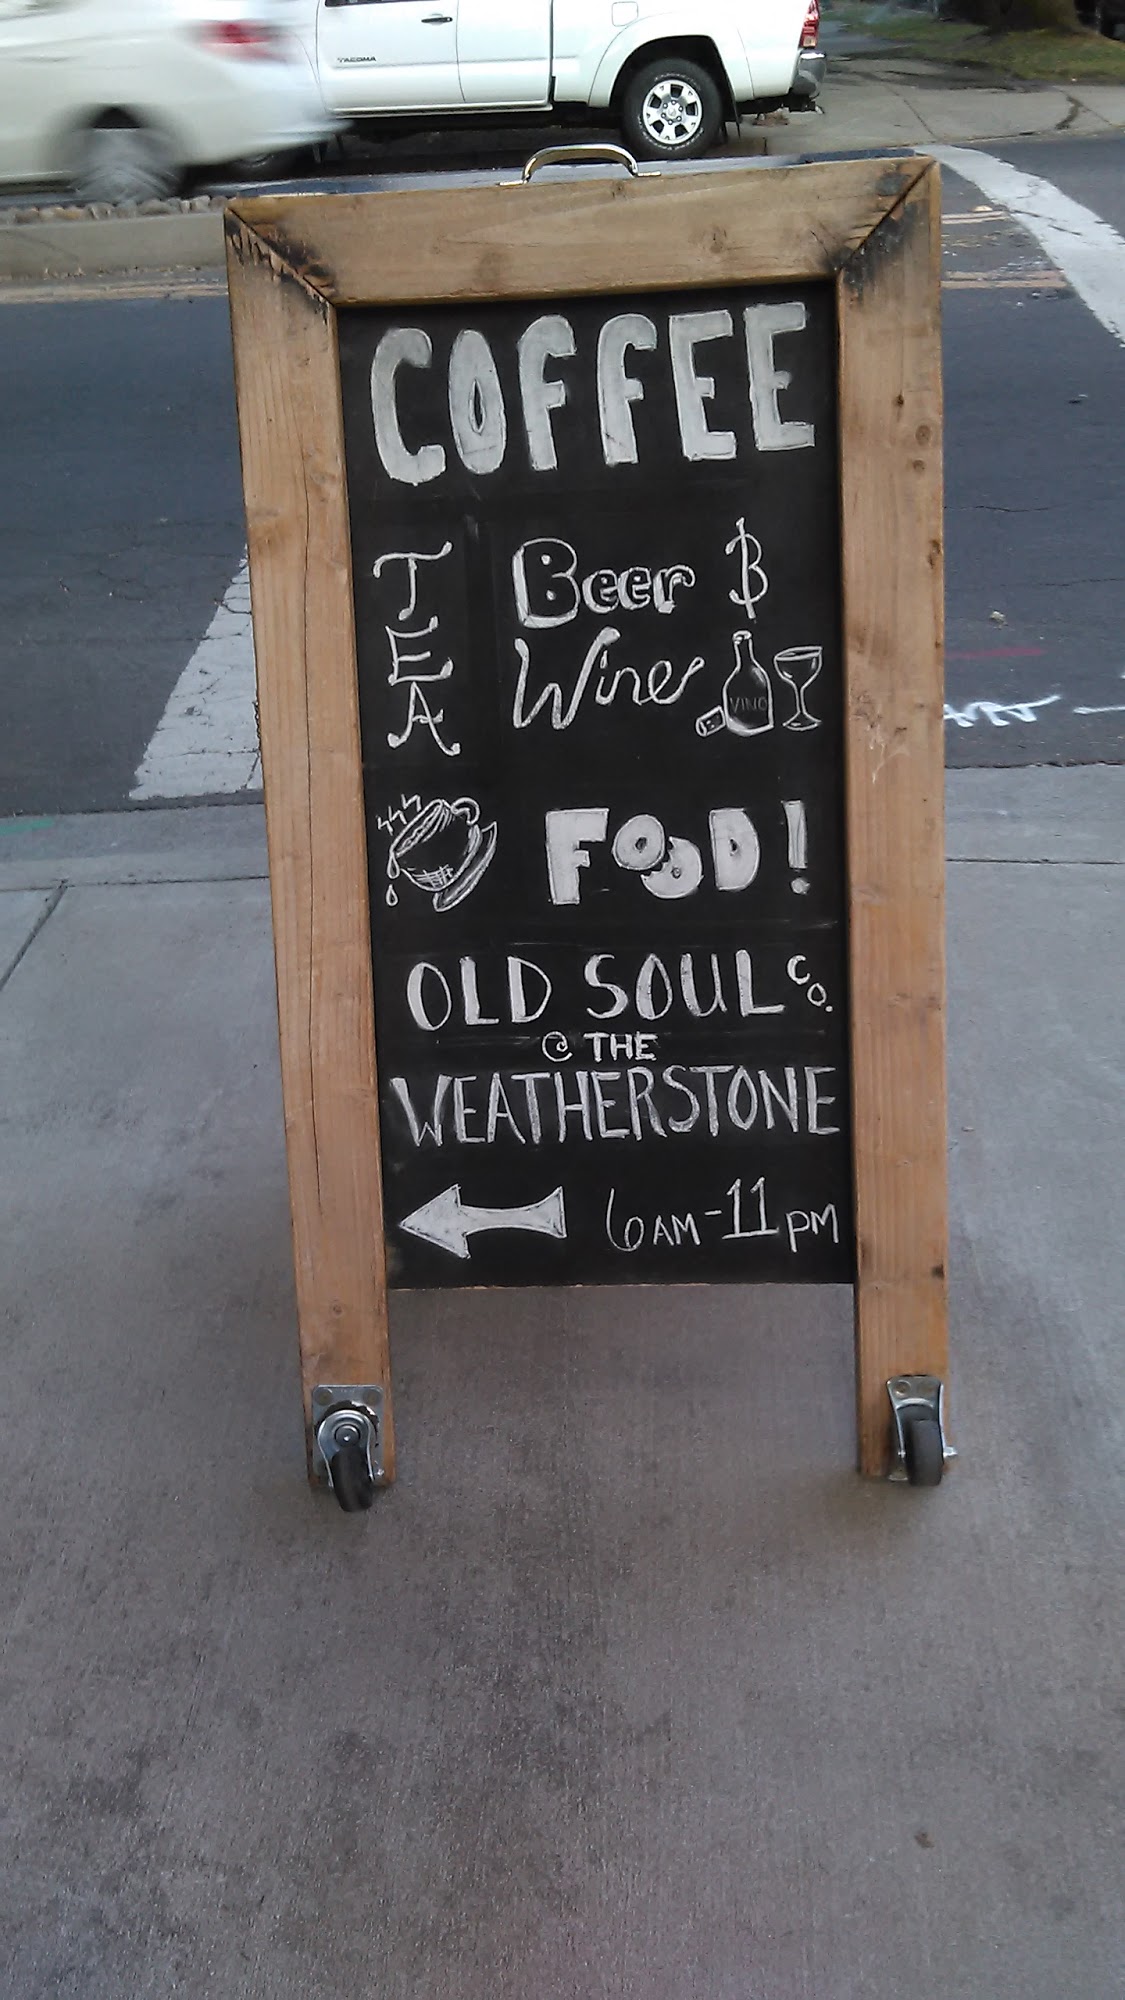 TACOMA
COFFEE
TEA
Beer &
Wine
VINO
FOOD!
OLD SOUL CO.
@ THE
WEATHERSTONE
6AM-11PM